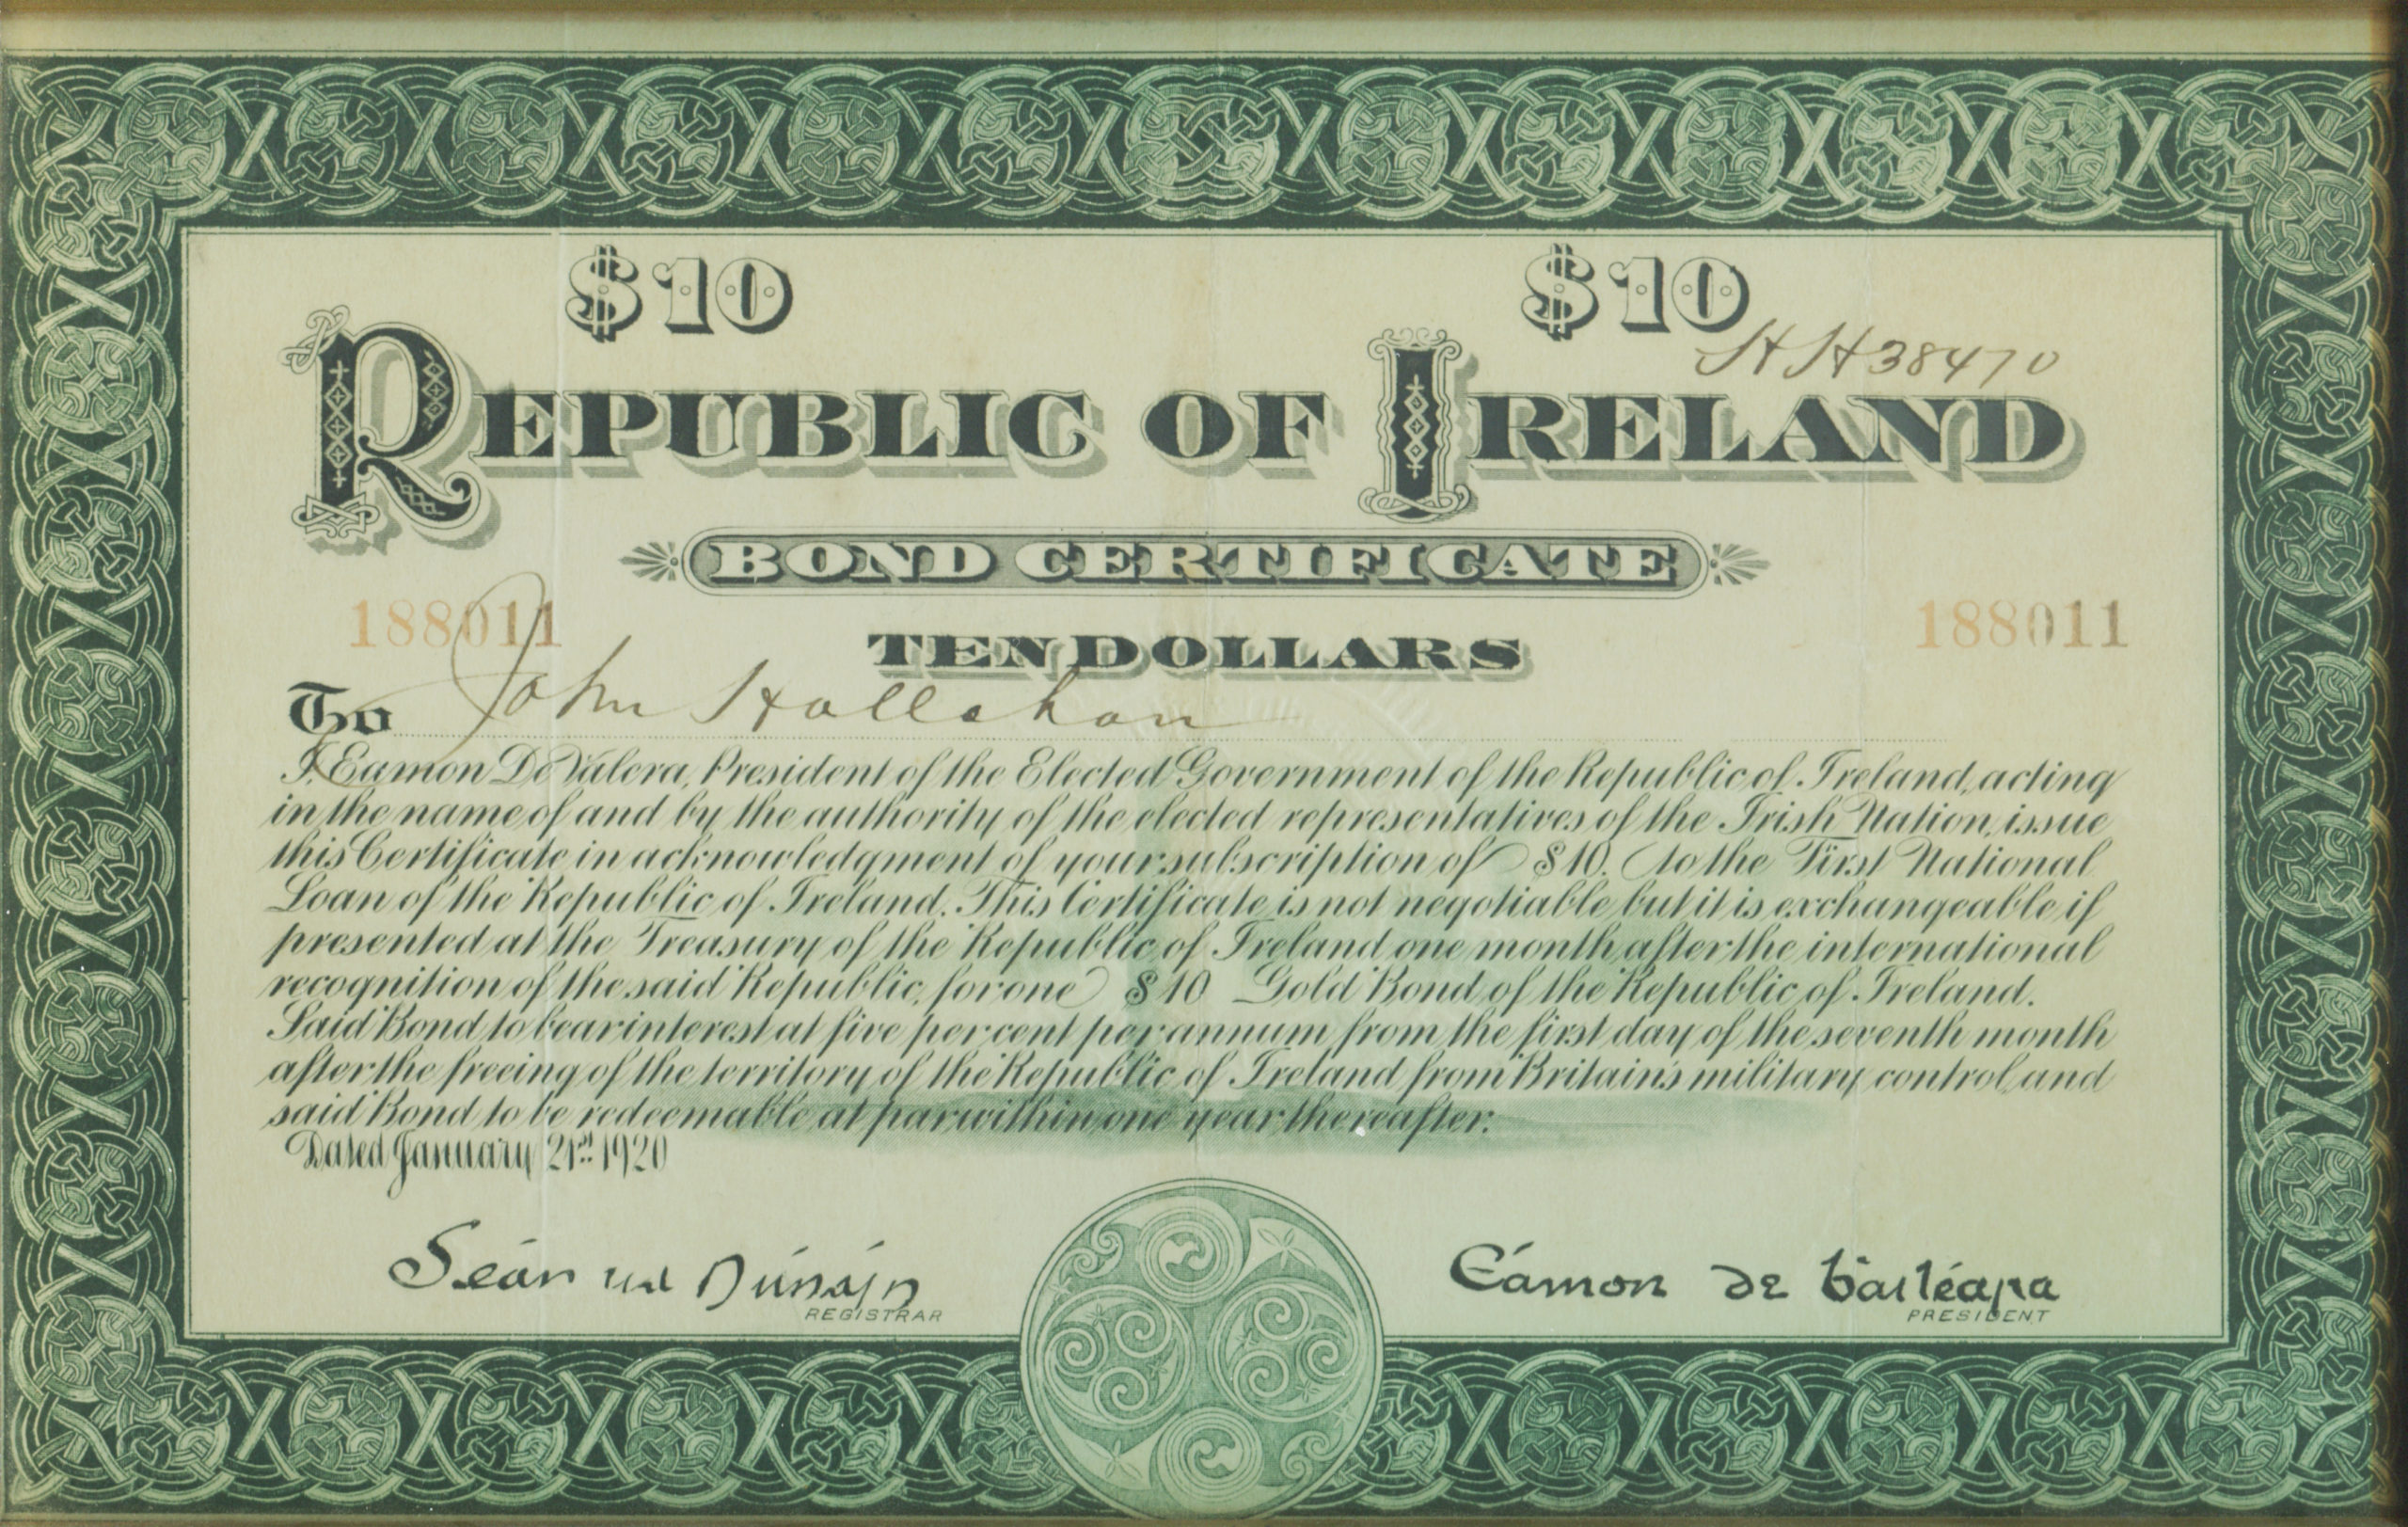 $10 $10
HH38470
REPUBLIC OF IRELAND
BOND CERTIFICATE
188011 188011
TEN DOLLARS
To John Hallahan
I, Eamon De Valera, President of the Elected Government of the Republic of Ireland, acting
in the name of and by the authority of the elected representatives of the Irish Nation, issue
this Certificate in acknowledgment of your subscription of $10. to the First National
Loan of the Republic of Ireland. This Certificate is not negotiable but it is exchangeable if
presented at the Treasury of the Republic of Ireland one month after the international
recognition of the said Republic, for one $10 Gold Bond of the Republic of Ireland.
Said Bond to bear interest at five per cent per annum from the first day of the seventh month
after the freeing of the territory of the Republic of Ireland from Britain's military control, and
said Bond to be redeemable at par within one year thereafter.
Dated January 21st 1920
Seán
REGISTRAR
Éamon de
PRESIDENT